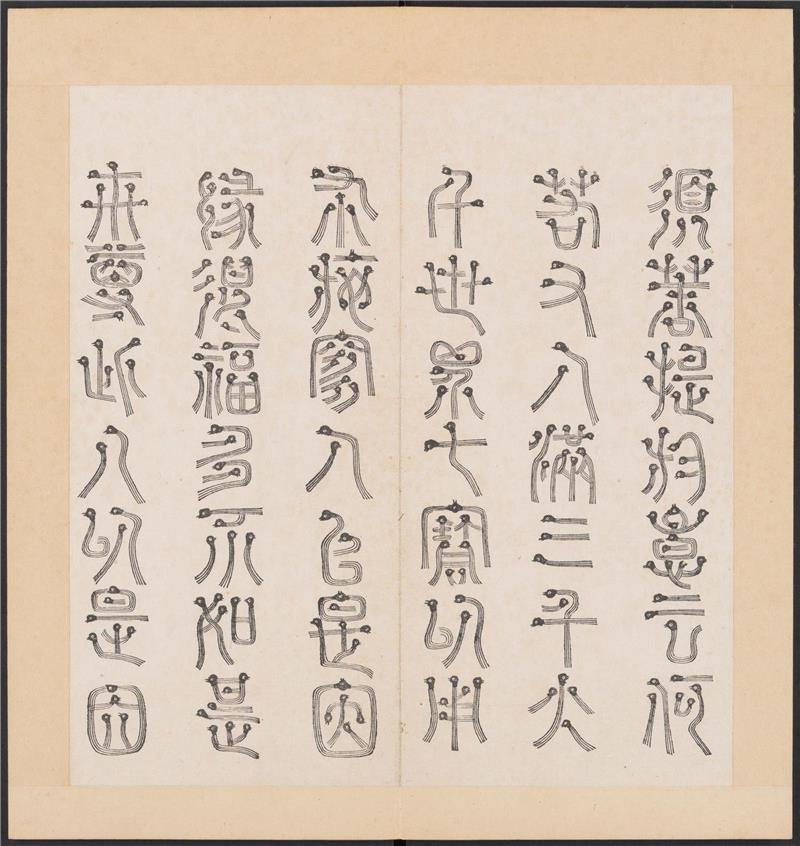 須菩提於意云何
若有人滿三千大
千世界七寶以用
布施是人以是因
緣得福多不如是
世尊此人以是因